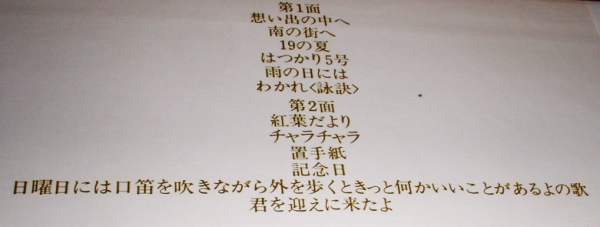 第1面
想い出の中へ
南の街へ
19の夏
はつかり5号
雨の日には
わかれ<詠訣>
第2面
紅葉だより
チャラチャラ
置手紙
記念日
日曜日には口笛を吹きながら外を歩くときっと何かいいことがあるよの歌
君を迎えに来たよ